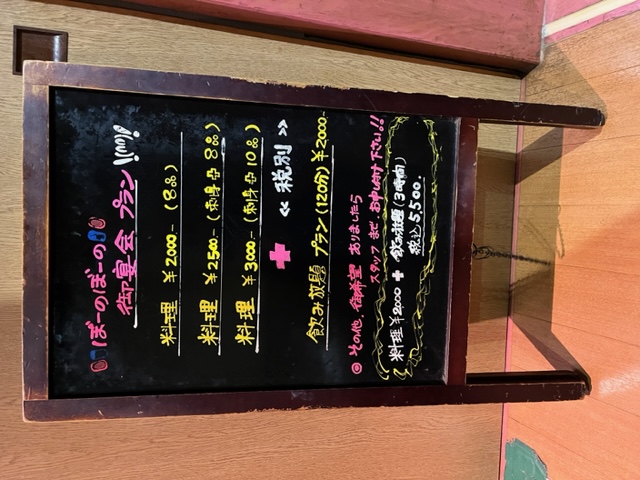 ぼーのぼーの
御宴会プラン
料理 ¥2000- (8品)
料理 ¥2500- (刺身込 8品)
料理 ¥3000- (刺身込 10品)
+
≪税別≫
飲み放題 プラン(120分) ¥2000-
◎その他、御希望 ありましたら
スタッフまで お申し付け下さい!!
料理 ¥2000 + 飲み放題(3時間)
税込 5,500.